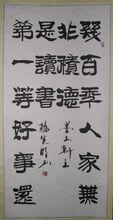 幾百年人家無
非積德
第一等好事還
是讀書